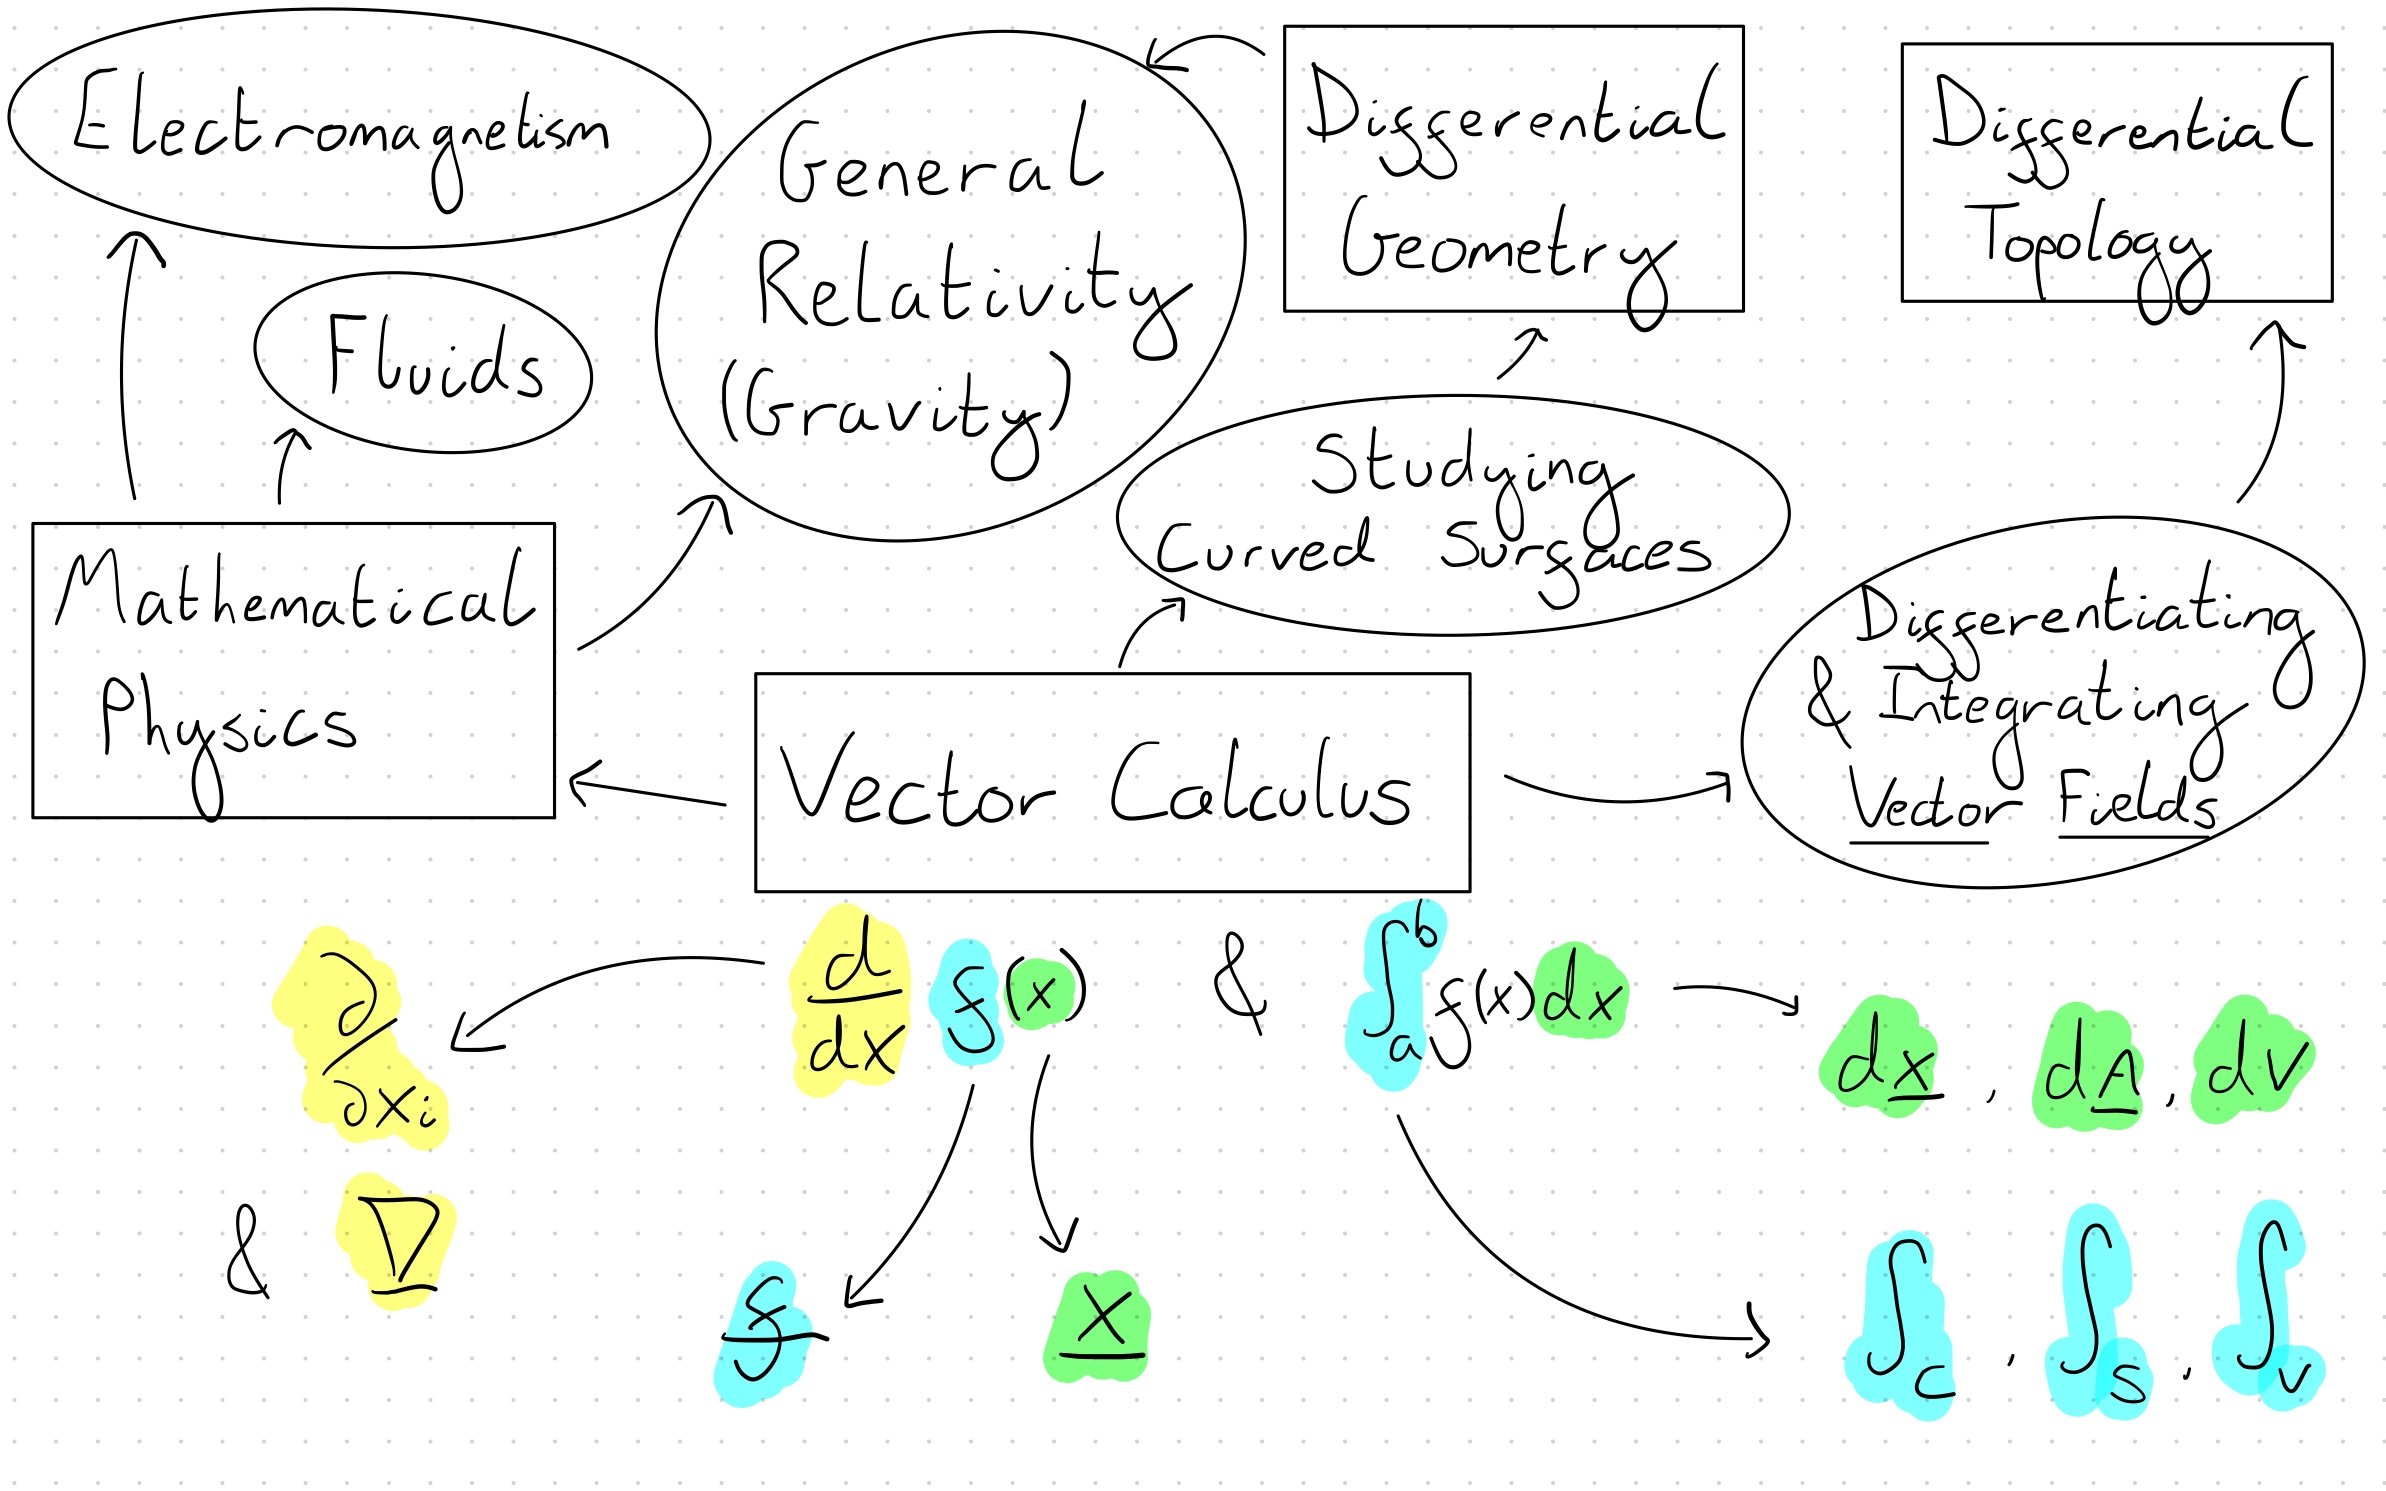 Electromagnetism
Fluids
General
Relativity
(Gravity)
Differential
Geometry
Differential
Topology
Studying
Curved Surfaces
Mathematical
Physics
Vector Calculus
Differentiating
& Integrating
Vector Fields
d/dx f(x) & ∫_a^b f(x)dx
∂/∂x_i
& ∇
f
x
dx, dA, dV
∫_C, ∫_S, ∫_V